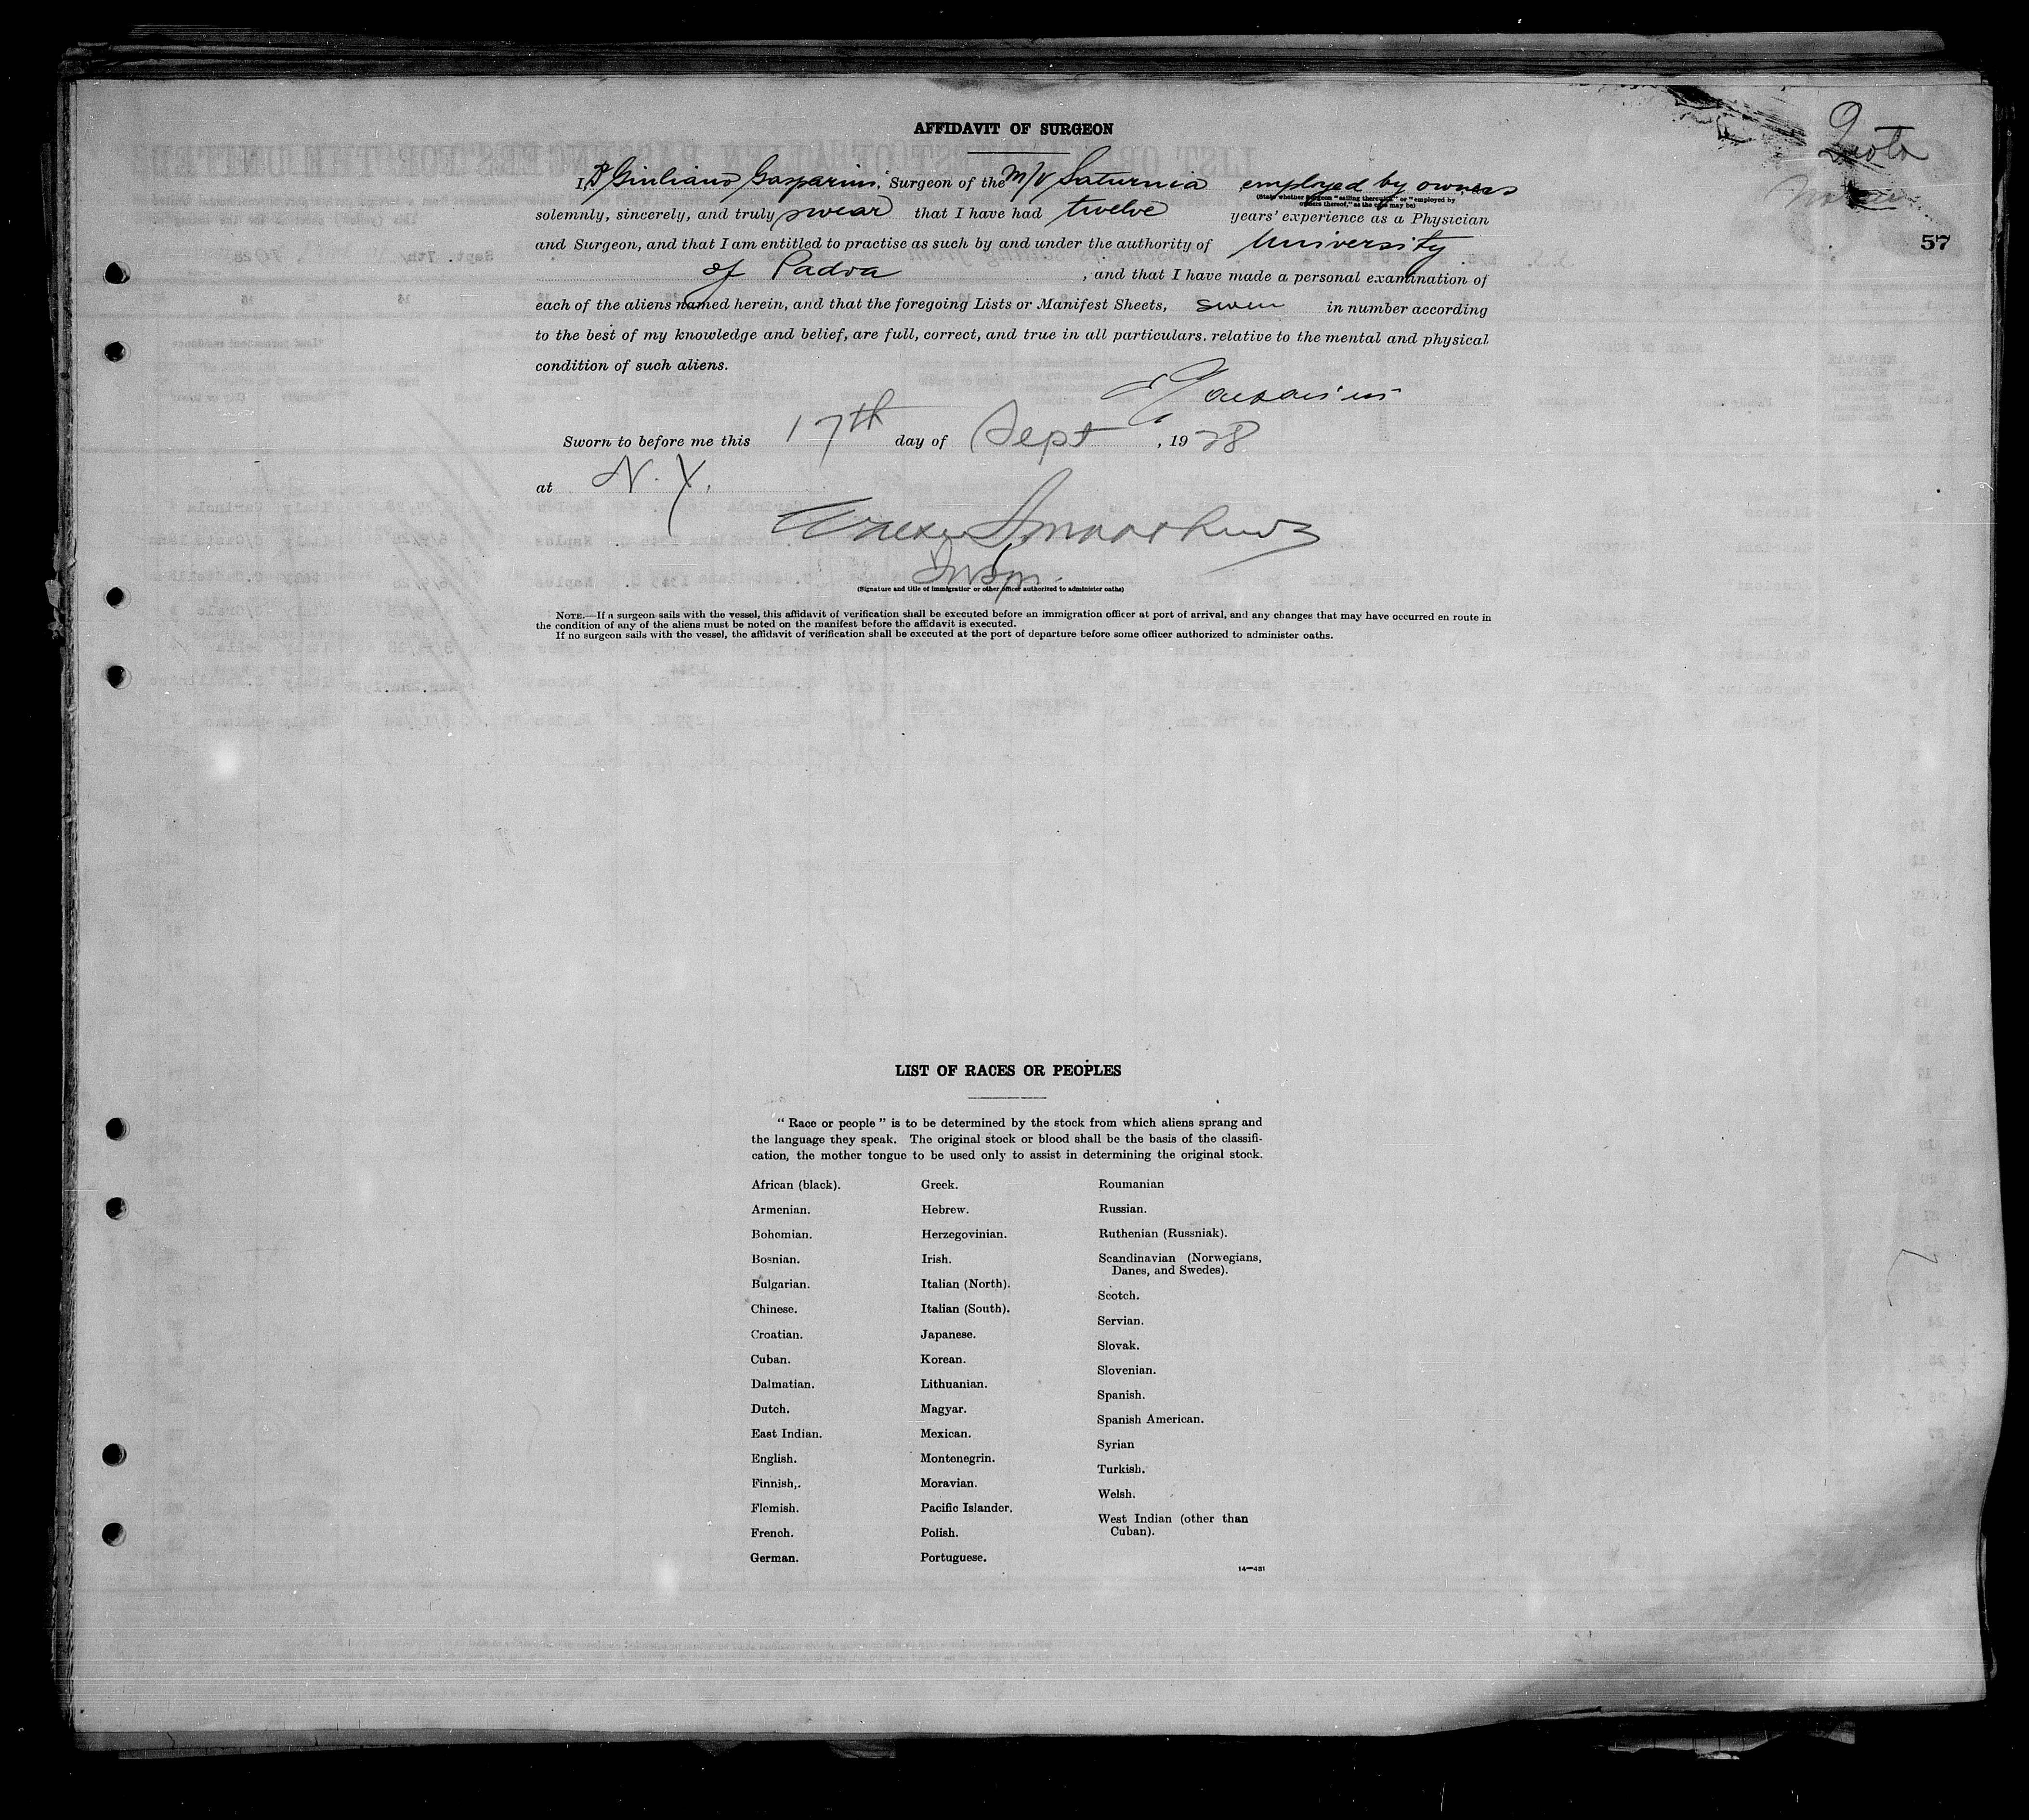 AFFIDAVIT OF SURGEON
57
I, Dr Giuliano Gasparini, Surgeon of the M/V Saturnia employed by owners
(State whether surgeon "sailing therewith" or "employed by
owners thereof," as the case may be)
solemnly, sincerely, and truly swear that I have had twelve years' experience as a Physician
and Surgeon, and that I am entitled to practise as such by and under the authority of University
of Padva, and that I have made a personal examination of
each of the aliens named herein, and that the foregoing Lists or Manifest Sheets, in number according
to the best of my knowledge and belief, are full, correct, and true in all particulars, relative to the mental and physical
condition of such aliens.
Sworn to before me this 17th day of Sept, 1928
at N. Y.
Insp.
(Signature and title of immigration or other officer authorized to administer oaths)
NOTE.—If a surgeon sails with the vessel, this affidavit of verification shall be executed before an immigration officer at port of arrival, and any changes that may have occurred en route in
the condition of any of the aliens must be noted on the manifest before the affidavit is executed.
If no surgeon sails with the vessel, the affidavit of verification shall be executed at the port of departure before some officer authorized to administer oaths.
LIST OF RACES OR PEOPLES
"Race or people" is to be determined by the stock from which aliens sprang and
the language they speak. The original stock or blood shall be the basis of the classifi-
cation, the mother tongue to be used only to assist in determining the original stock.
African (black).
Armenian.
Bohemian.
Bosnian.
Bulgarian.
Chinese.
Croatian.
Cuban.
Dalmatian.
Dutch.
East Indian.
English.
Finnish,.
Flemish.
French.
German.
Greek.
Hebrew.
Herzegovinian.
Irish.
Italian (North).
Italian (South).
Japanese.
Korean.
Lithuanian.
Magyar.
Mexican.
Montenegrin.
Moravian.
Pacific Islander.
Polish.
Portuguese.
Roumanian
Russian.
Ruthenian (Russniak).
Scandinavian (Norwegians,
Danes, and Swedes).
Scotch.
Servian.
Slovak.
Slovenian.
Spanish.
Spanish American.
Syrian
Turkish.
Welsh.
West Indian (other than
Cuban).
14—431